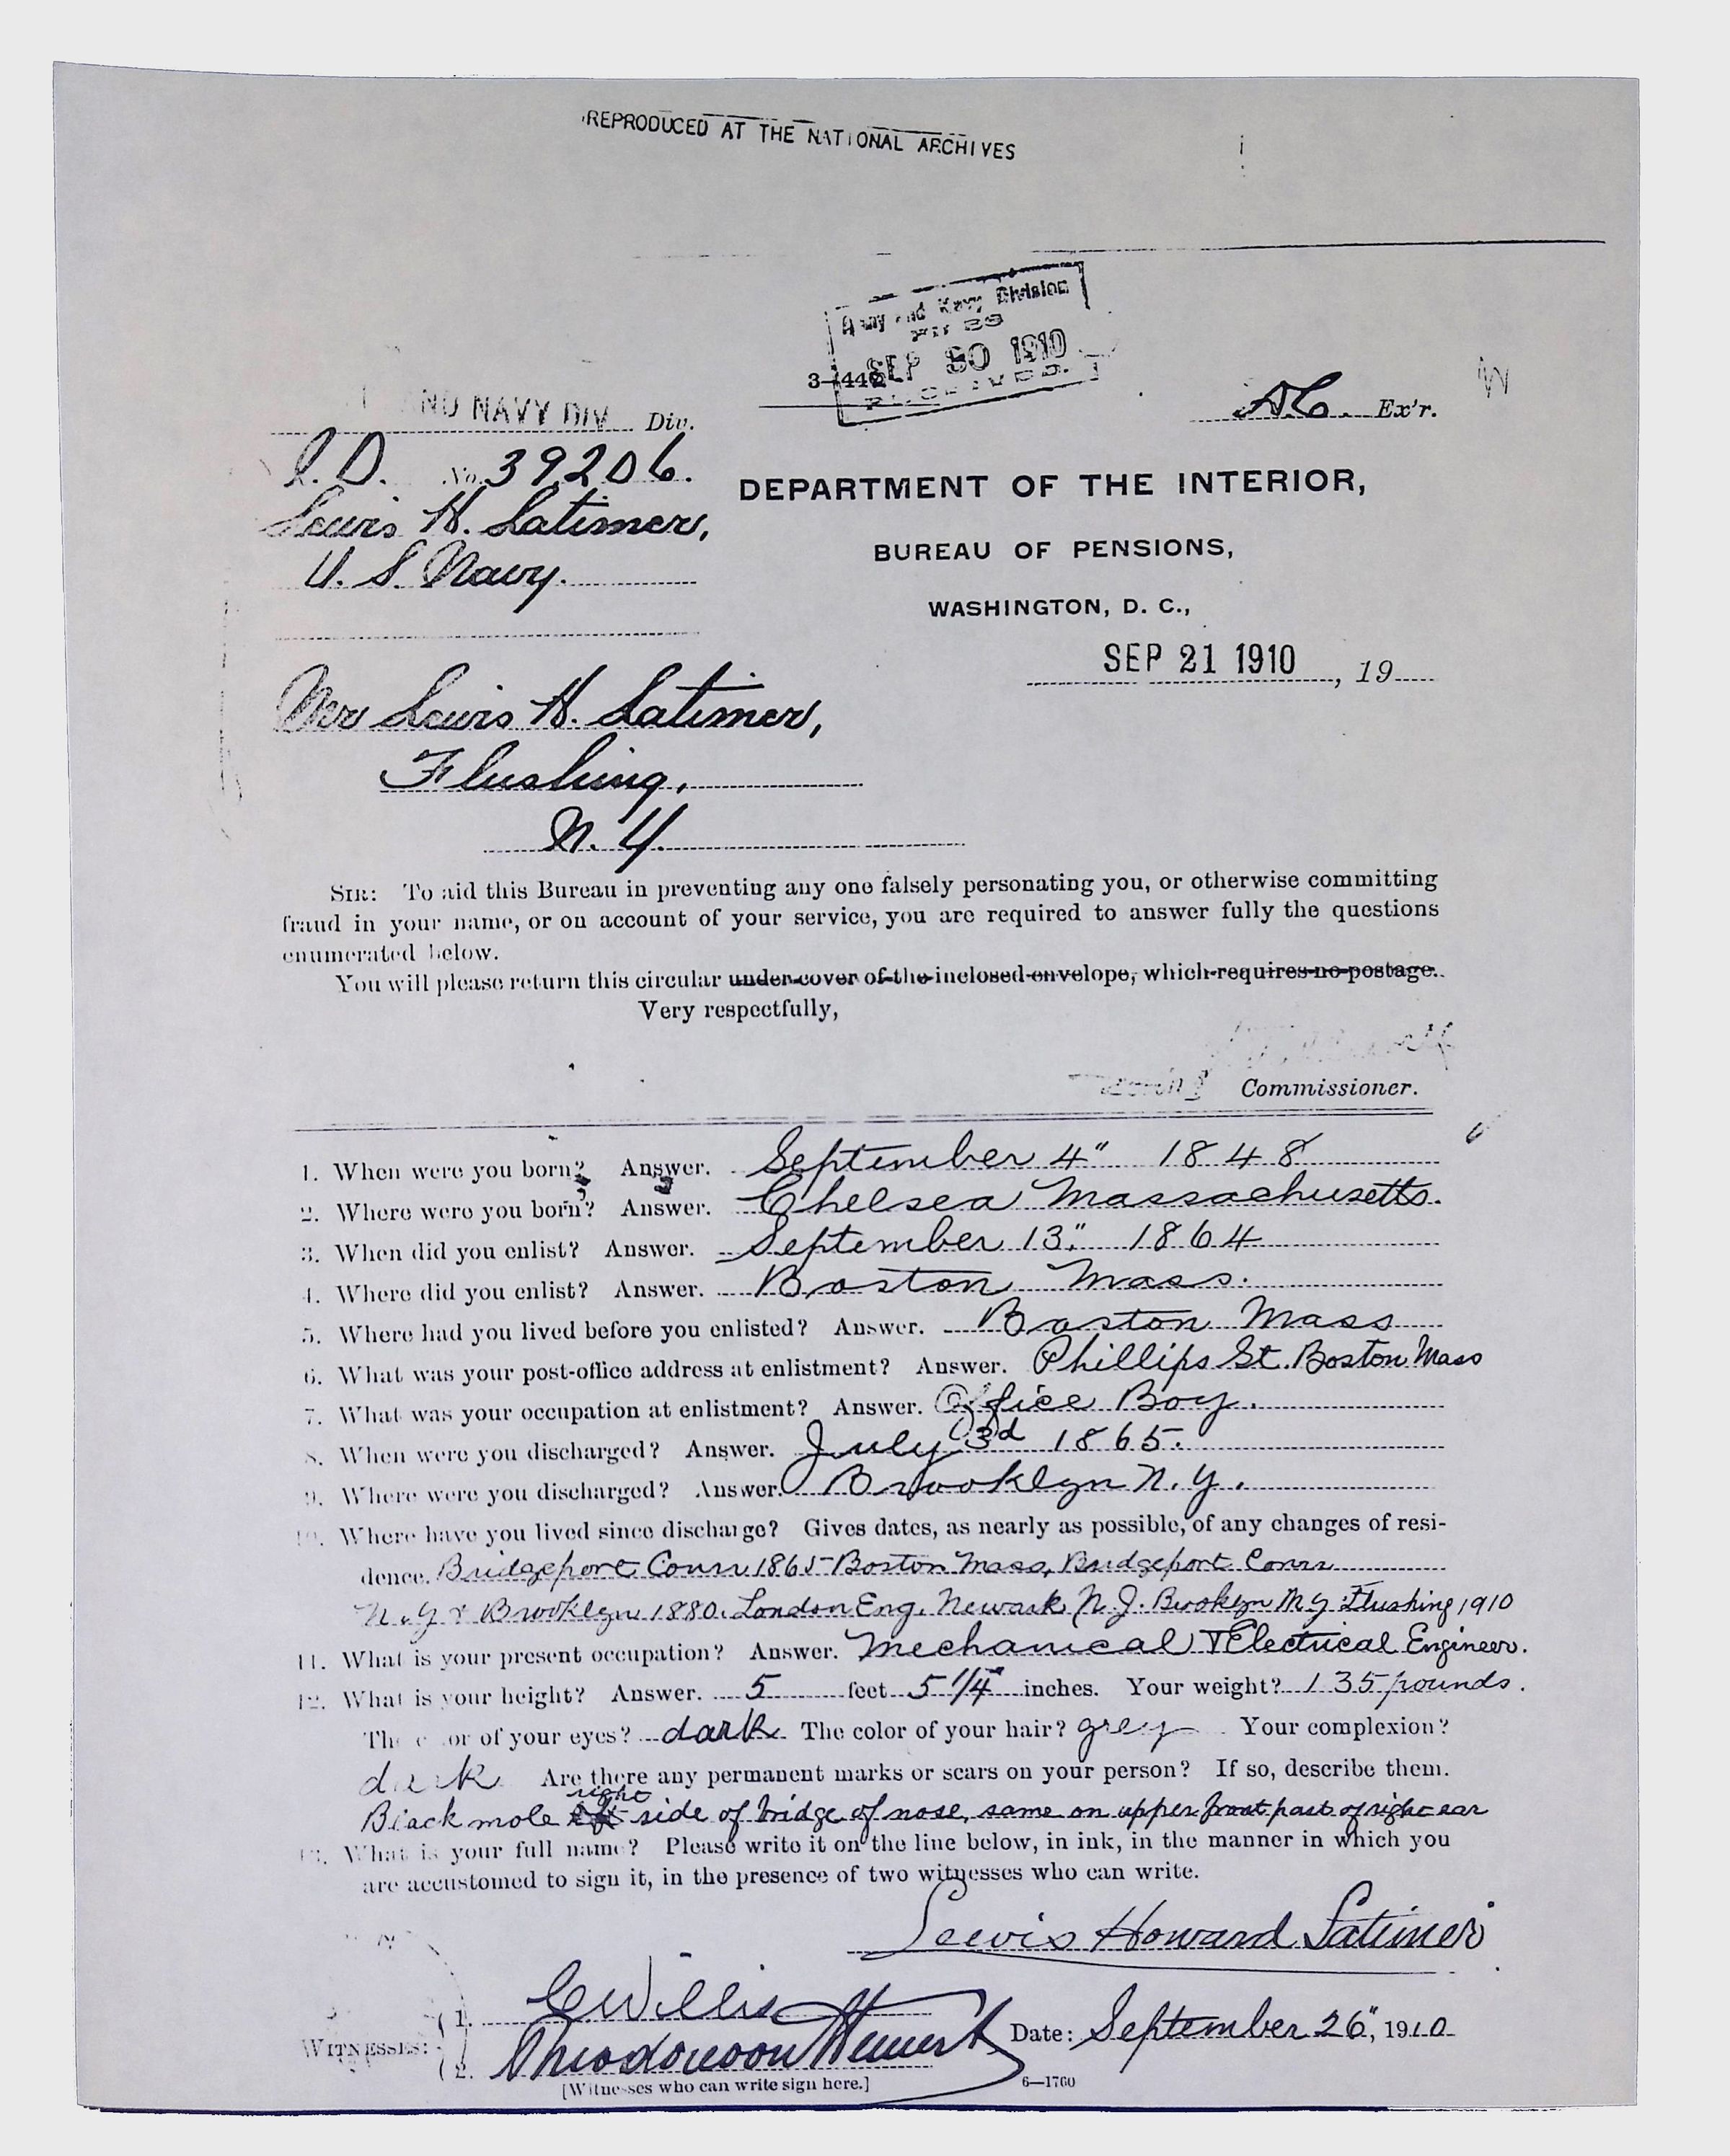 REPRODUCED AT THE NATIONAL ARCHIVES
Army and Navy Division
SEP 30 1910
3—446
ND NAVY DIV Div.
Ex'r.
No. 39206.
Lewis H. Latimer,
U. S. Navy.
DEPARTMENT OF THE INTERIOR,
BUREAU OF PENSIONS,
WASHINGTON, D. C.,
SEP 21 1910, 19
Mr Lewis H. Latimer,
Flushing,
N. Y.
SIR: To aid this Bureau in preventing any one falsely personating you, or otherwise committing
fraud in your name, or on account of your service, you are required to answer fully the questions
enumerated below.
You will please return this circular under cover of the inclosed envelope, which requires no postage.
Very respectfully,
Commissioner.
1. When were you born? Answer. September 4" 1848
2. Where were you born? Answer. Chelsea Massachusetts.
3. When did you enlist? Answer. September 13" 1864
4. Where did you enlist? Answer. Boston Mass.
5. Where had you lived before you enlisted? Answer. Boston Mass
6. What was your post-office address at enlistment? Answer. Phillips St. Boston Mass
7. What was your occupation at enlistment? Answer. Office Boy.
8. When were you discharged? Answer. July 3d 1865.
9. Where were you discharged? Answer. Brooklyn N. Y.
10. Where have you lived since discharge? Gives dates, as nearly as possible, of any changes of resi-
dence. Bridgeport Conn 1865 Boston Mass, Bridgeport Conn
N.Y & Brooklyn 1880. London Eng. Newark N J. Brooklyn N Y Flushing 1910
11. What is your present occupation? Answer. Mechanical & Electrical Engineer.
12. What is your height? Answer. 5 feet 5 1/4 inches. Your weight? 135 pounds.
The color of your eyes? dark The color of your hair? grey Your complexion?
dark Are there any permanent marks or scars on your person? If so, describe them.
right
Black mole left side of bridge of nose, same on upper front part of right ear
13. What is your full name? Please write it on the line below, in ink, in the manner in which you
are accustomed to sign it, in the presence of two witnesses who can write.
Lewis Howard Latimer
WITNESSES:
1. E Willis
2.
Date: September 26", 1910
[Witnesses who can write sign here.]
6—1760